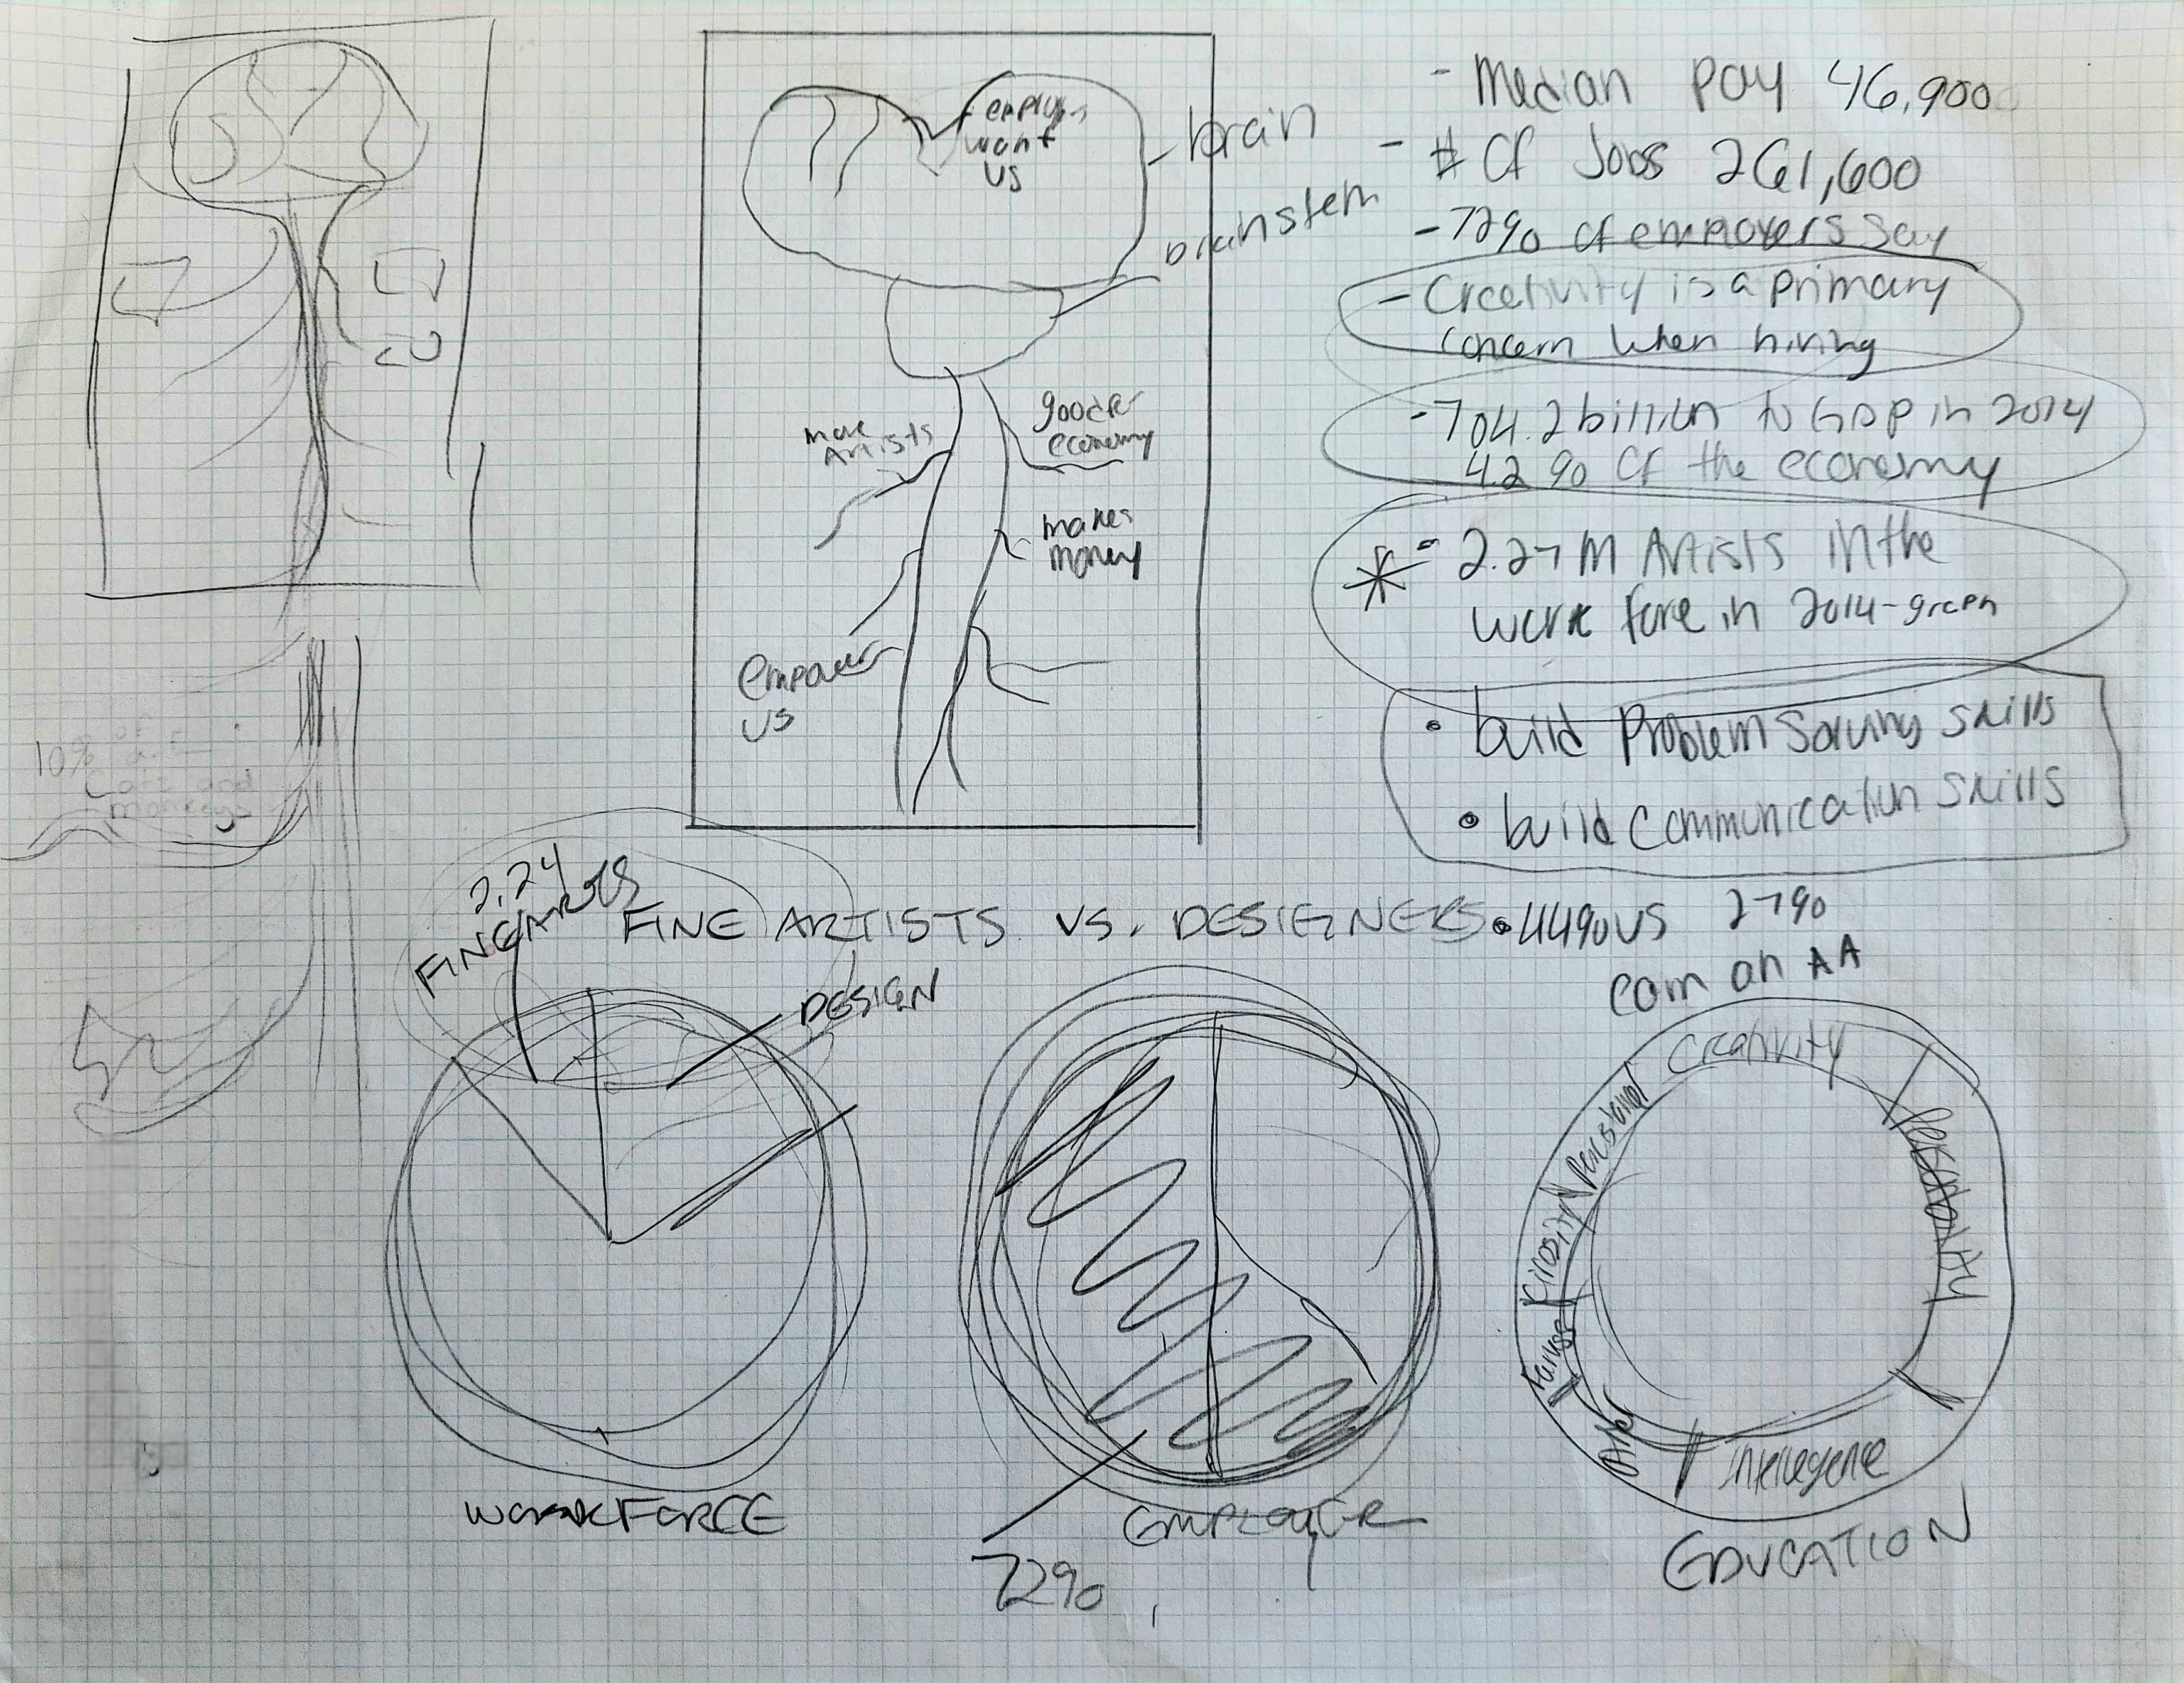 want
us
brain
brainstem
more
Artists
good for
economy
makes
money
Empower
us
- Median pay 46,900
- # of Jobs 261,600
- 72% of employers say
- Creativity is a primary
concern when hiring
- 704.2 billion to GDP in 2014
4.2% of the economy
* - 2.27 M Artists in the
work force in 2014 - graph
• build problem solving skills
• build communication skills
• 44% vs 27%
earn an AA
10% of
Cats and
FINE ARTISTS VS. DESIGNERS
2.24
FINE ARTS
DESIGN
WORKFORCE
72%
EMPLOYER
Creativity
Personality
Other
EDUCATION